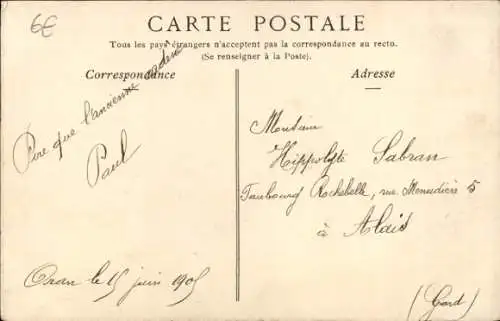 6€
CARTE POSTALE
Tous les pays étrangers n'acceptent pas la correspondance au recto.
(Se renseigner à la Poste).
Correspondance
Adresse
Pire que l'ancienne
Paul
Oran le 15 juin 1905
Monsieur
Hippolyte Sabran
Faubourg Rochebelle, rue Menudière 5
à Alais
(Gard)